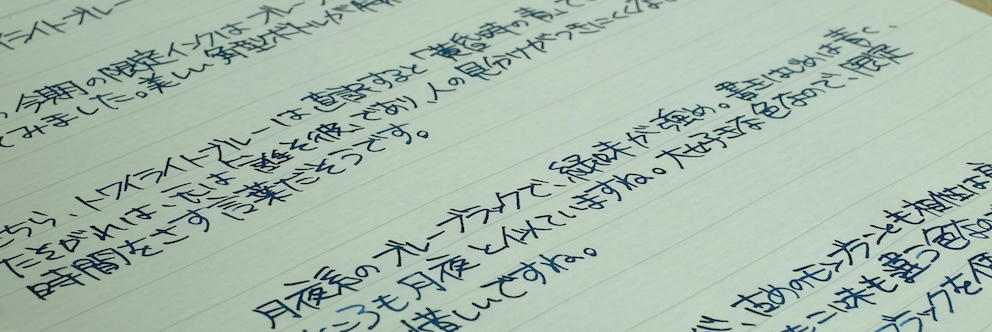 トワイライトブルー
今期の限定インクはブルー
てみました。美しい角型ボトルが
ちら、トワイライトブルーは直訳すると「黄昏時の青」で
たそがれは、元は「誰そ彼」であり、人の見分けがつきにくくな
時間をさす言葉だそうです。
月夜系のブルーブラックで、緑味が強め。書きはじめは青く、
ころも月夜と似ていますね。大好きな色なので、限定
惜しいですね。
のモンブランとも相性は
は味も違う色なの
ブラックを使